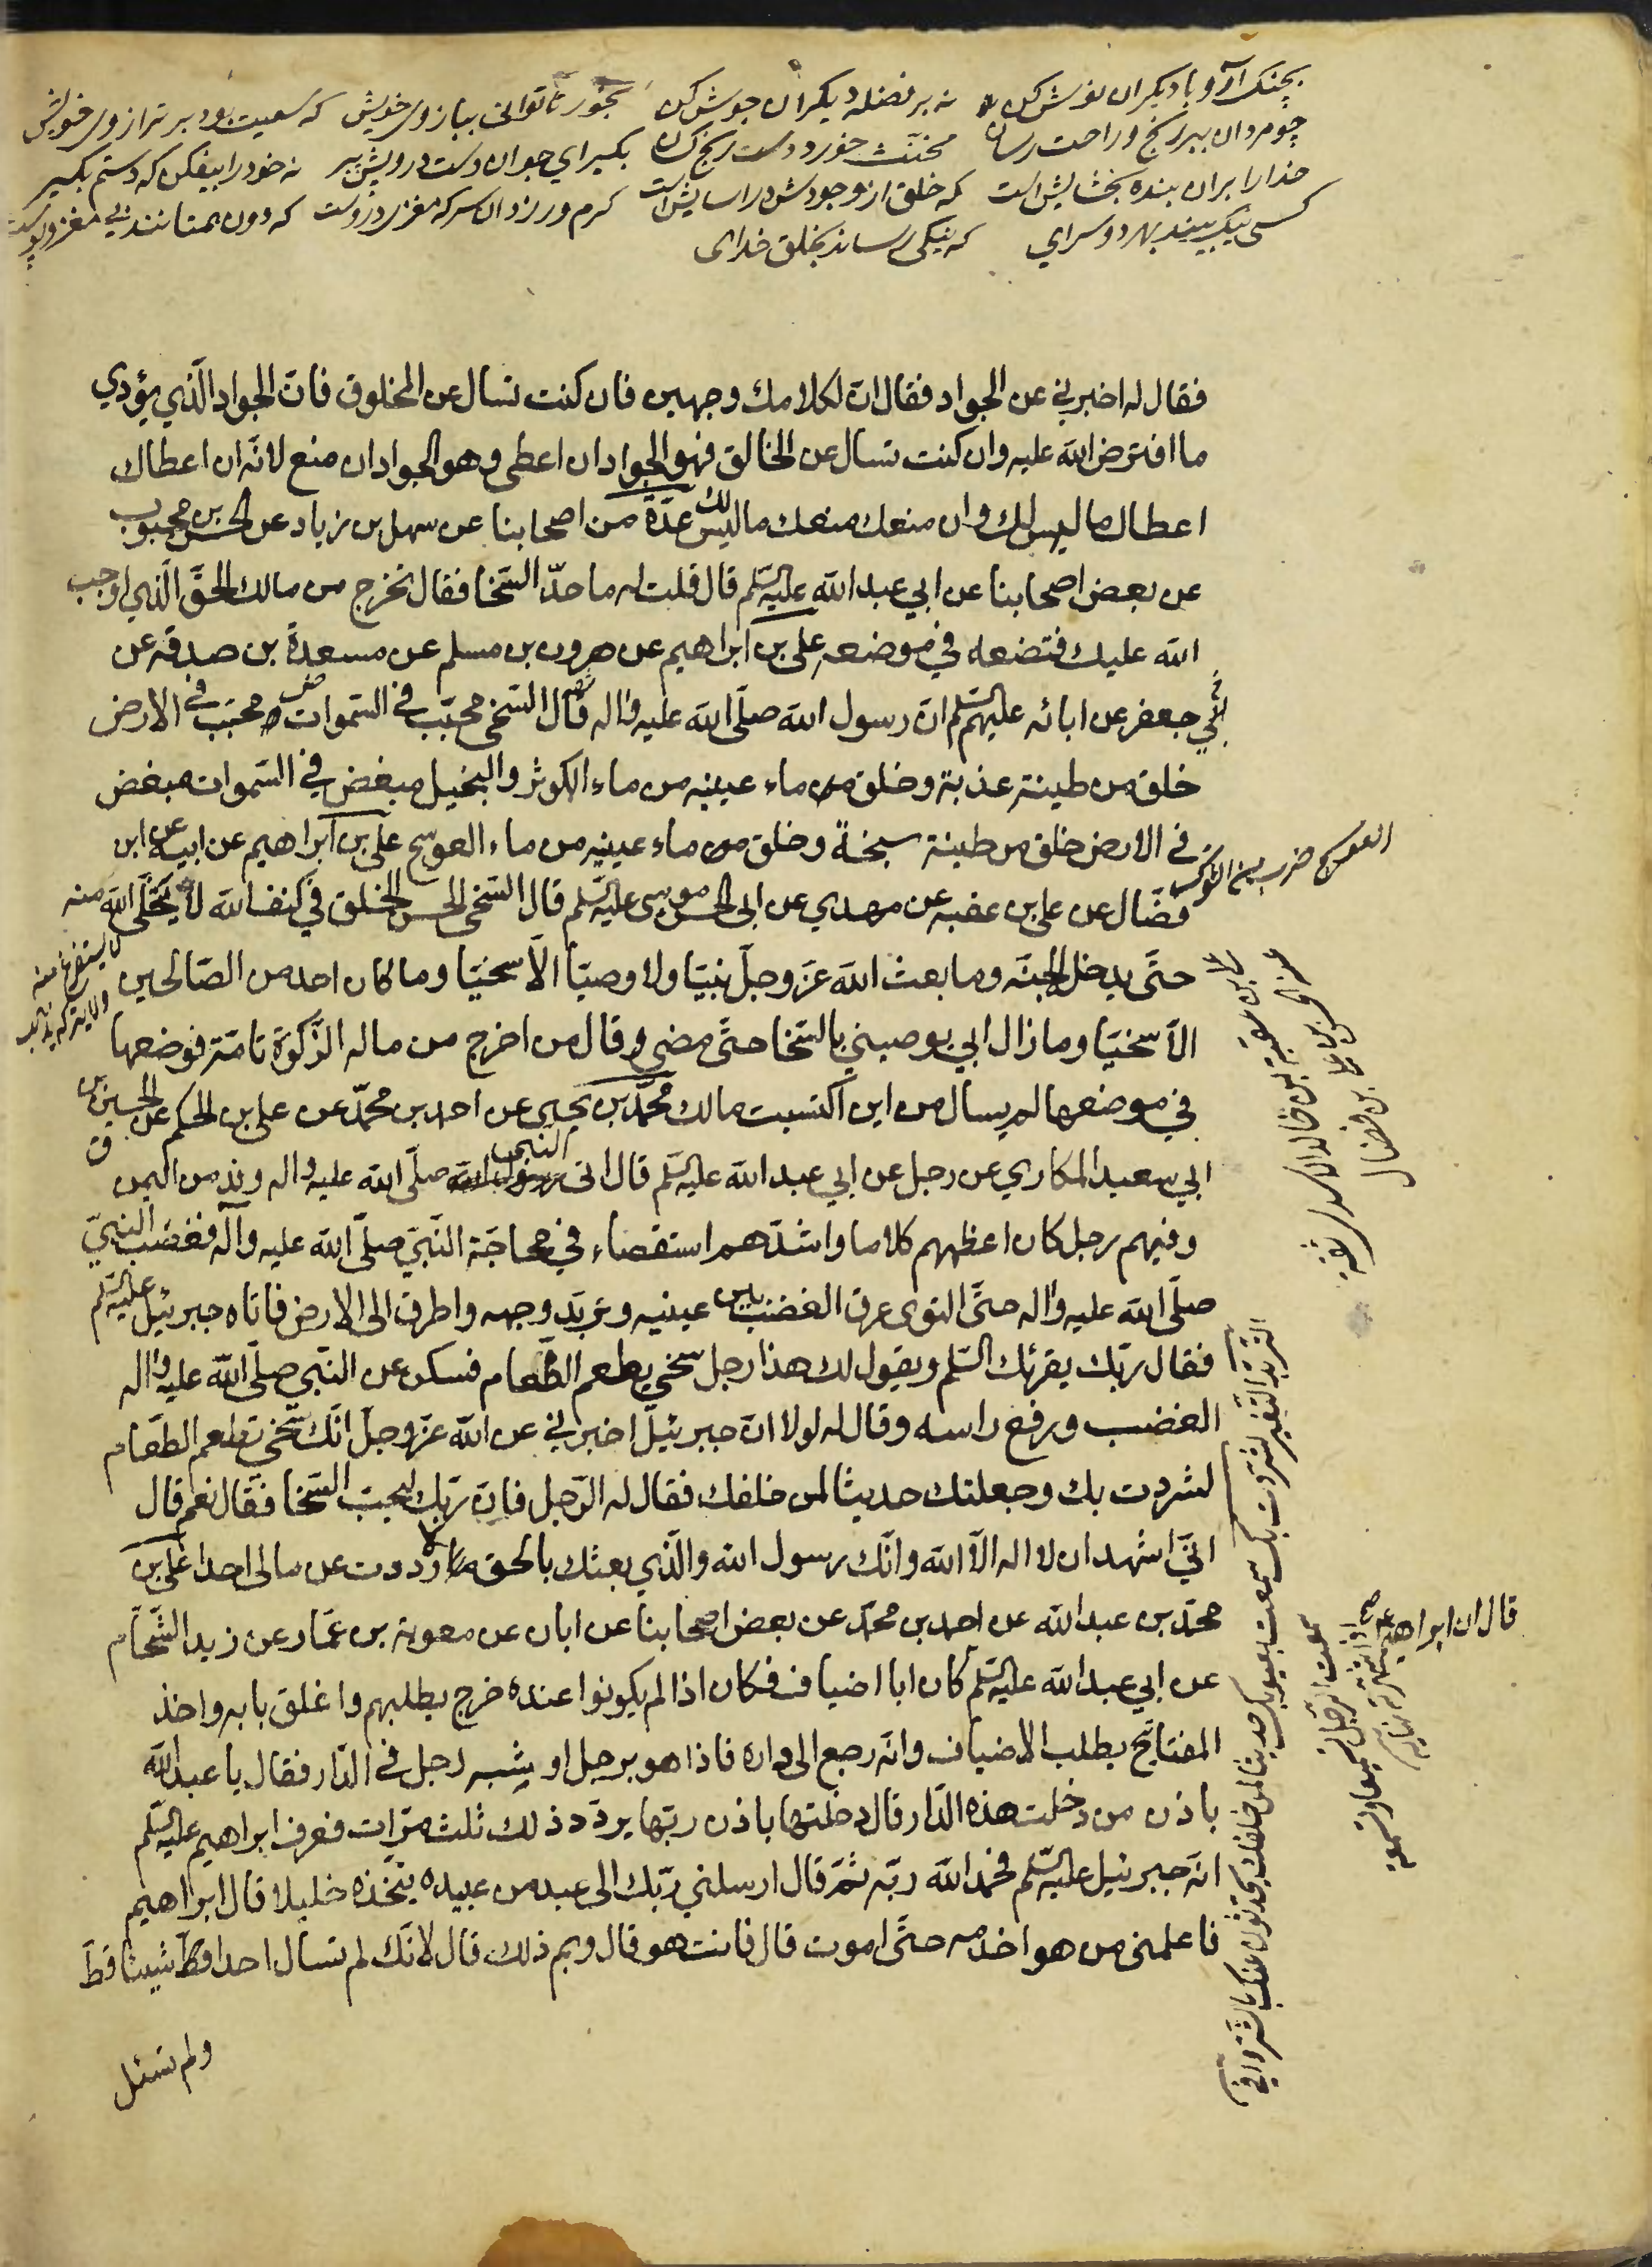 بچنک آر و با دیکران نوش کن نه بر فضله دیکران جوش کن بخور تا توانی ببازوی خویش که سعیت بود بر ترازوی خویش
چو مردان ببر رنج و راحت رسان مخنث خورد دست رنج کسان بکیر ای جوان دست درویش پیر نه خود را بیفکن که دستم بکیر
خدا را بر ان بنده بخشایش است که خلق از وجودش در اسایش است کرم ورزد ان سر که مغزی دروست که دون همتانند بی مغز و پوست
کسی نیک بیند بهر دو سرای که نیکی رساند بخلق خدای
فقال له اخبرني عن الجواد فقال ان لكلامك وجهين فان كنت تسال عن المخلوق فان الجواد الذي يؤدي
ما افترض الله عليه وان كنت تسال عن الخالق فهو الجواد ان اعطى وهو الجواد ان منع لانه ان اعطاك
اعطاك ما ليس لك وان منعك منعك ما ليس لك عدة من اصحابنا عن سهل بن زياد عن الحسن بن محبوب
عن بعض اصحابنا عن ابي عبد الله عليه السلم قال قلت له ما حد السخا فقال تخرج من مالك الحق الذي اوجب
الله عليك فتضعه في موضعه علي بن ابراهيم عن هرون بن مسلم عن مسعدة بن صدقه عن
جعفر عن ابائه عليهم السلم ان رسول الله صلى الله عليه واله قال السخي محبب في السموات محبب في الارض
خلق من طينة عذبة وخلق من ماء عينيه من ماء الكوثر والبخيل مبغض في السموات مبغض
في الارض خلق من طينة سبخة وخلق من ماء عينيه من ماء العوسج علي بن ابراهيم عن ابيه عن ابن
فضال عن علي بن عقبه عن مهدي عن ابي الحسن موسى عليه السلم قال السخي الحسن الخلق في كنف الله لا يتخلى الله منه
حتى يدخل الجنه وما بعث الله عز وجل نبيا ولا وصيا الا سخيا وما كان احد من الصالحين
الا سخيا وما زال ابي يوصيني بالسخا حتى مضى وقال من اخرج من ماله الزكوة تامة فوضعها
في موضعها لم يسال من اين اكتسبت مالك محمد بن يحيى عن احمد بن محمد عن علي بن الحكم عن الحسين بن
ابي سعيد المكاري عن رجل عن ابي عبد الله عليه السلم قال اتى النبي صلى الله عليه واله وفد من اليمن
وفيهم رجل كان اعظمهم كلاما واشدهم استقصاء في محاجة النبي صلى الله عليه وآله فغضب النبي
صلى الله عليه واله حتى التوى عرق الغضب بين عينيه وتربد وجهه واطرق الى الارض فاتاه جبرئيل عليه السلم
فقال ربك يقرئك السلم ويقول لك هذا رجل سخي يطعم الطعام فسكن عن النبي صلى الله عليه واله
الغضب ورفع راسه وقال له لولا ان جبرئيل اخبرني عن الله عز وجل انك سخي تطعم الطعام
لشردت بك وجعلتك حديثا لمن خلفك فقال له الرجل فان ربك ليحب السخا فقال نعم قال
اني اشهد ان لا اله الا الله وانك رسول الله والذي بعثك بالحق لا رددت عن مالي احدا علي بن
محمد بن عبد الله عن احمد بن محمد عن بعض اصحابنا عن ابان عن معوية بن عمار عن زيد الشحام
عن ابي عبد الله عليه السلم كان ابا اضياف فكان اذا لم يكونوا عنده خرج يطلبهم واغلق بابه واخذ
المفتايح يطلب الاضياف وانه رجع الى داره فاذا هو برجل او شبه رجل في الدار فقال يا عبد الله
باذن من دخلت هذه الدار قال دخلتها باذن ربها يردد ذلك ثلث مرات فعرف ابراهيم عليه السلم
انه جبرئيل عليه السلم فحمد الله ربه ثم قال ارسلني ربك الى عبد من عبيده يتخذه خليلا قال ابراهيم
فاعلمني من هو اخدمه حتى اموت قال فانت هو قال وبم ذلك قال لانك لم تسال احدا قط شيئا قط
ولم تسئل
العوسج ضرب من الشوك
علي بن عقبة بن خالد الاسدي ثقة
عن الحسن بن علي بن فضال
قال ان ابراهيم